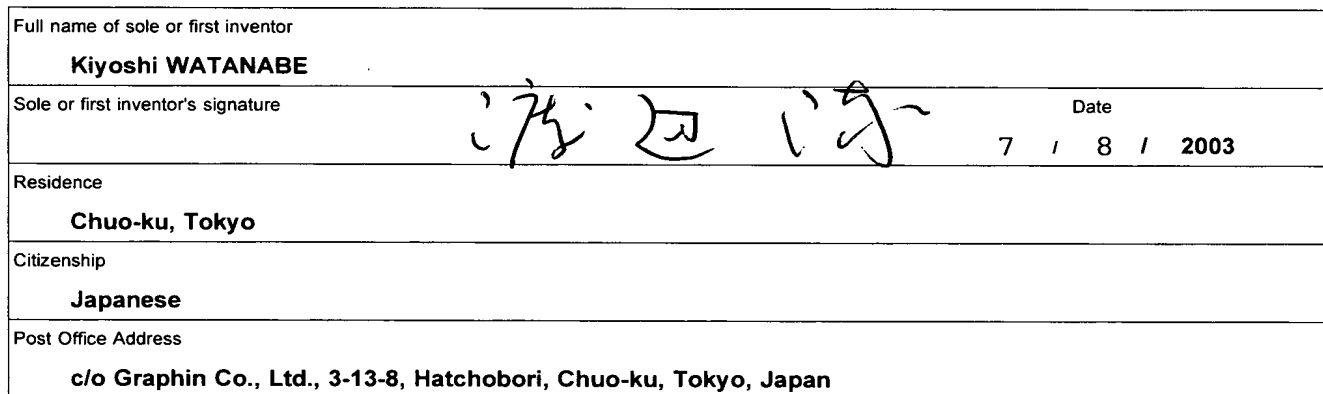 Full name of sole or first inventor
Kiyoshi WATANABE
Sole or first inventor's signature
Date
7 / 8 / 2003
Residence
Chuo-ku, Tokyo
Citizenship
Japanese
Post Office Address
c/o Graphin Co., Ltd., 3-13-8, Hatchobori, Chuo-ku, Tokyo, Japan